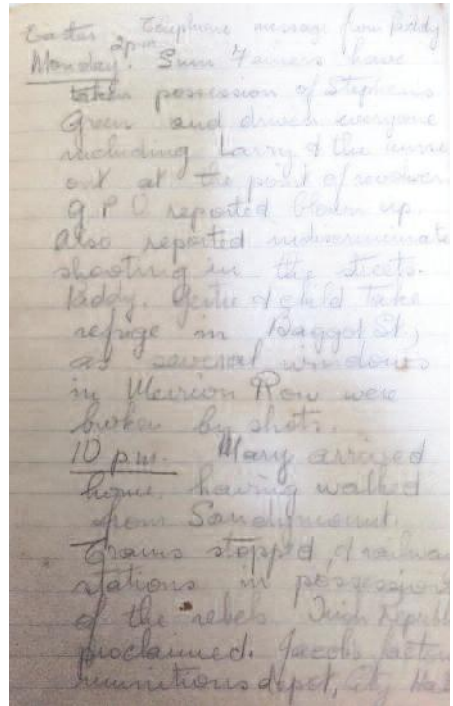 Easter Telephone message from Paddy
Monday. 2pm. Sinn Feiners have
taken possession of Stephens
Green and driven everyone
including Larry & the nurse
out at the point of revolver
G P O reported blown up.
Also reported indiscriminate
shooting in the streets.
Paddy. Gertie & child take
refuge in Baggot St,
as several windows
in Merrion Row were
broken by shots.
10 p.m. Mary arrived
home, having walked
from Sandymount.
Trams stopped, & railway
stations in possession
of the rebels Irish Republ
proclaimed. Jacobs factory
munitions depot, City Hal